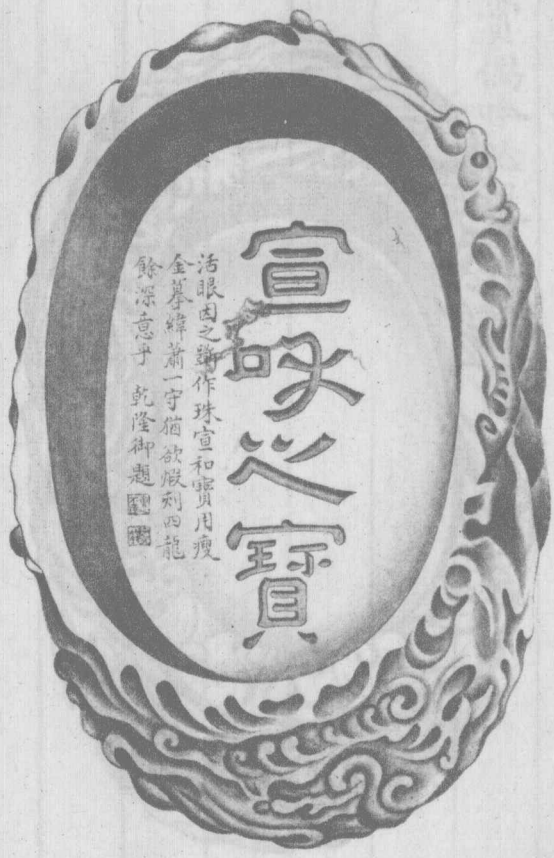 宣咊之寶
活眼因之號作珠宣和寶用瘦
金摹緯蕭一守猶欲煅刻四龍
餘深意乎 乾隆御題